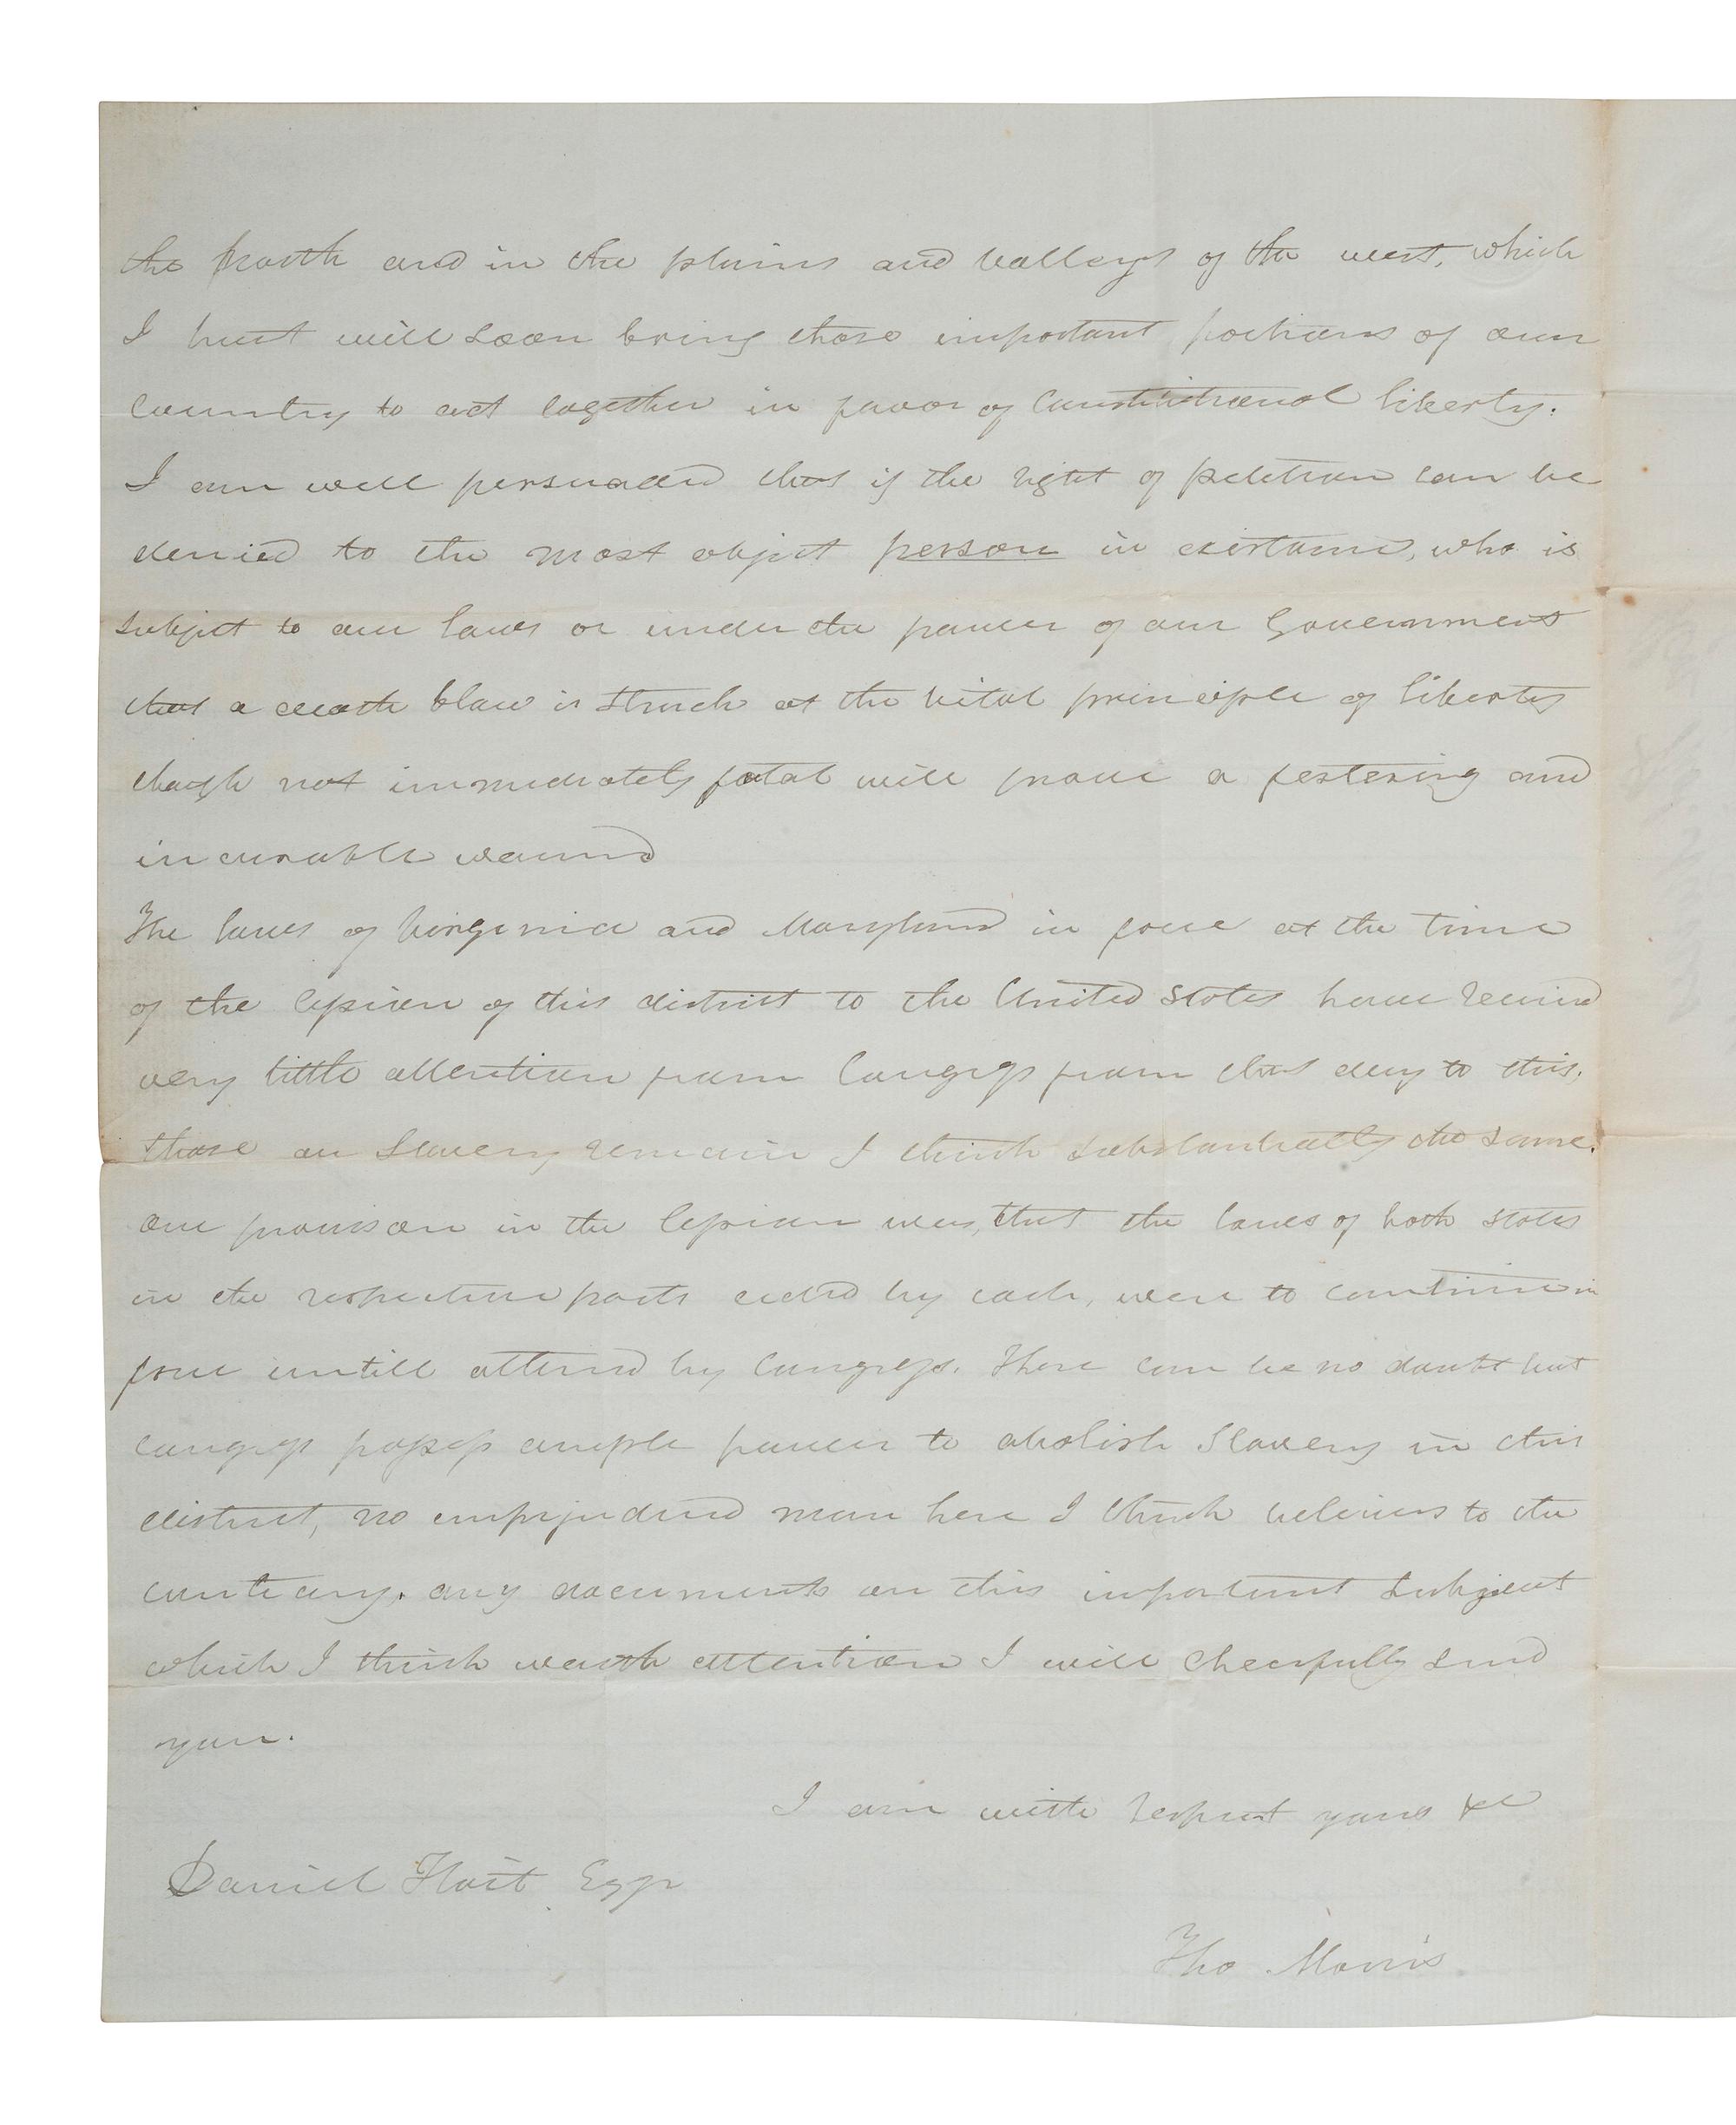 the North and in the plains and valleys of the west, which
I trust will soon bring those important portions of our
Country to act together in favor of Constitutional liberty.
I am well persuaded that if the right of petition can be
denied to the most abject person in existance, who is
subject to our laws or under the power of our Government
that a death blow is struck at the vital principle of liberty
though not immediately fatal will prove a festering and
incurable wound
The laws of Virginia and Maryland in force at the time
of the Cession of this district to the United States have received
very little attention from Congress from that day to this,
those on Slavery remain I think substantially the same.
one provison in the Cession was, that the laws of both states
in the respective parts ceded by each, were to continue in
force untill altered by Congress. There can be no doubt but
Congress possess ample power to abolish Slavery in this
district, no unprejudiced man here I think believes to the
contrary. any documents on this important Subject
which I think worth attention I will cheerfully send
you.
I am with respect yours &c
Daniel Hoit Esqr
Tho Morris